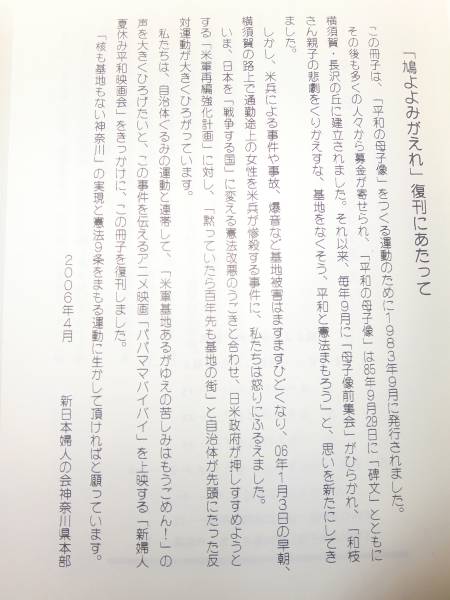 「鳩よよみがえれ」復刊にあたって
この冊子は、「平和の母子像」をつくる運動のために1983年9月に発行されました。
その後も多くの人々から募金が寄せられ、「平和の母子像」は85年9月29日に「碑文」とともに
横須賀・長沢の丘に建立されました。それ以来、毎年9月に「母子像前集会」がひらかれ、「和枝
さん親子の悲劇をくりかえすな、基地をなくそう、平和と憲法まもろう」と、思いを新たにしてき
ました。
しかし、米兵による事件や事故、爆音など基地被害はますますひどくなり、06年1月3日の早朝、
横須賀の路上で通勤途上の女性を米兵が惨殺する事件に、私たちは怒りにふるえました。
いま、日本を「戦争する国」に変える憲法改悪のうごきと合わせ、日米政府が押しすすめようと
する「米軍再編強化計画」に対し、「黙っていたら百年先も基地の街」と自治体が先頭にたった反
対運動が大きくひろがっています。
私たちは、自治体ぐるみの運動と連帯して、「米軍基地あるがゆえの苦しみはもうごめん！」の
声を大きくひろげたいと、この事件を伝えるアニメ映画「パパママバイバイ」を上映する「新婦人
夏休み平和映画会」をきっかけに、この冊子を復刊しました。
「核も基地もない神奈川」の実現と憲法9条をまもる運動に生かして頂ければと願っています。
2006年4月
新日本婦人の会神奈川県本部